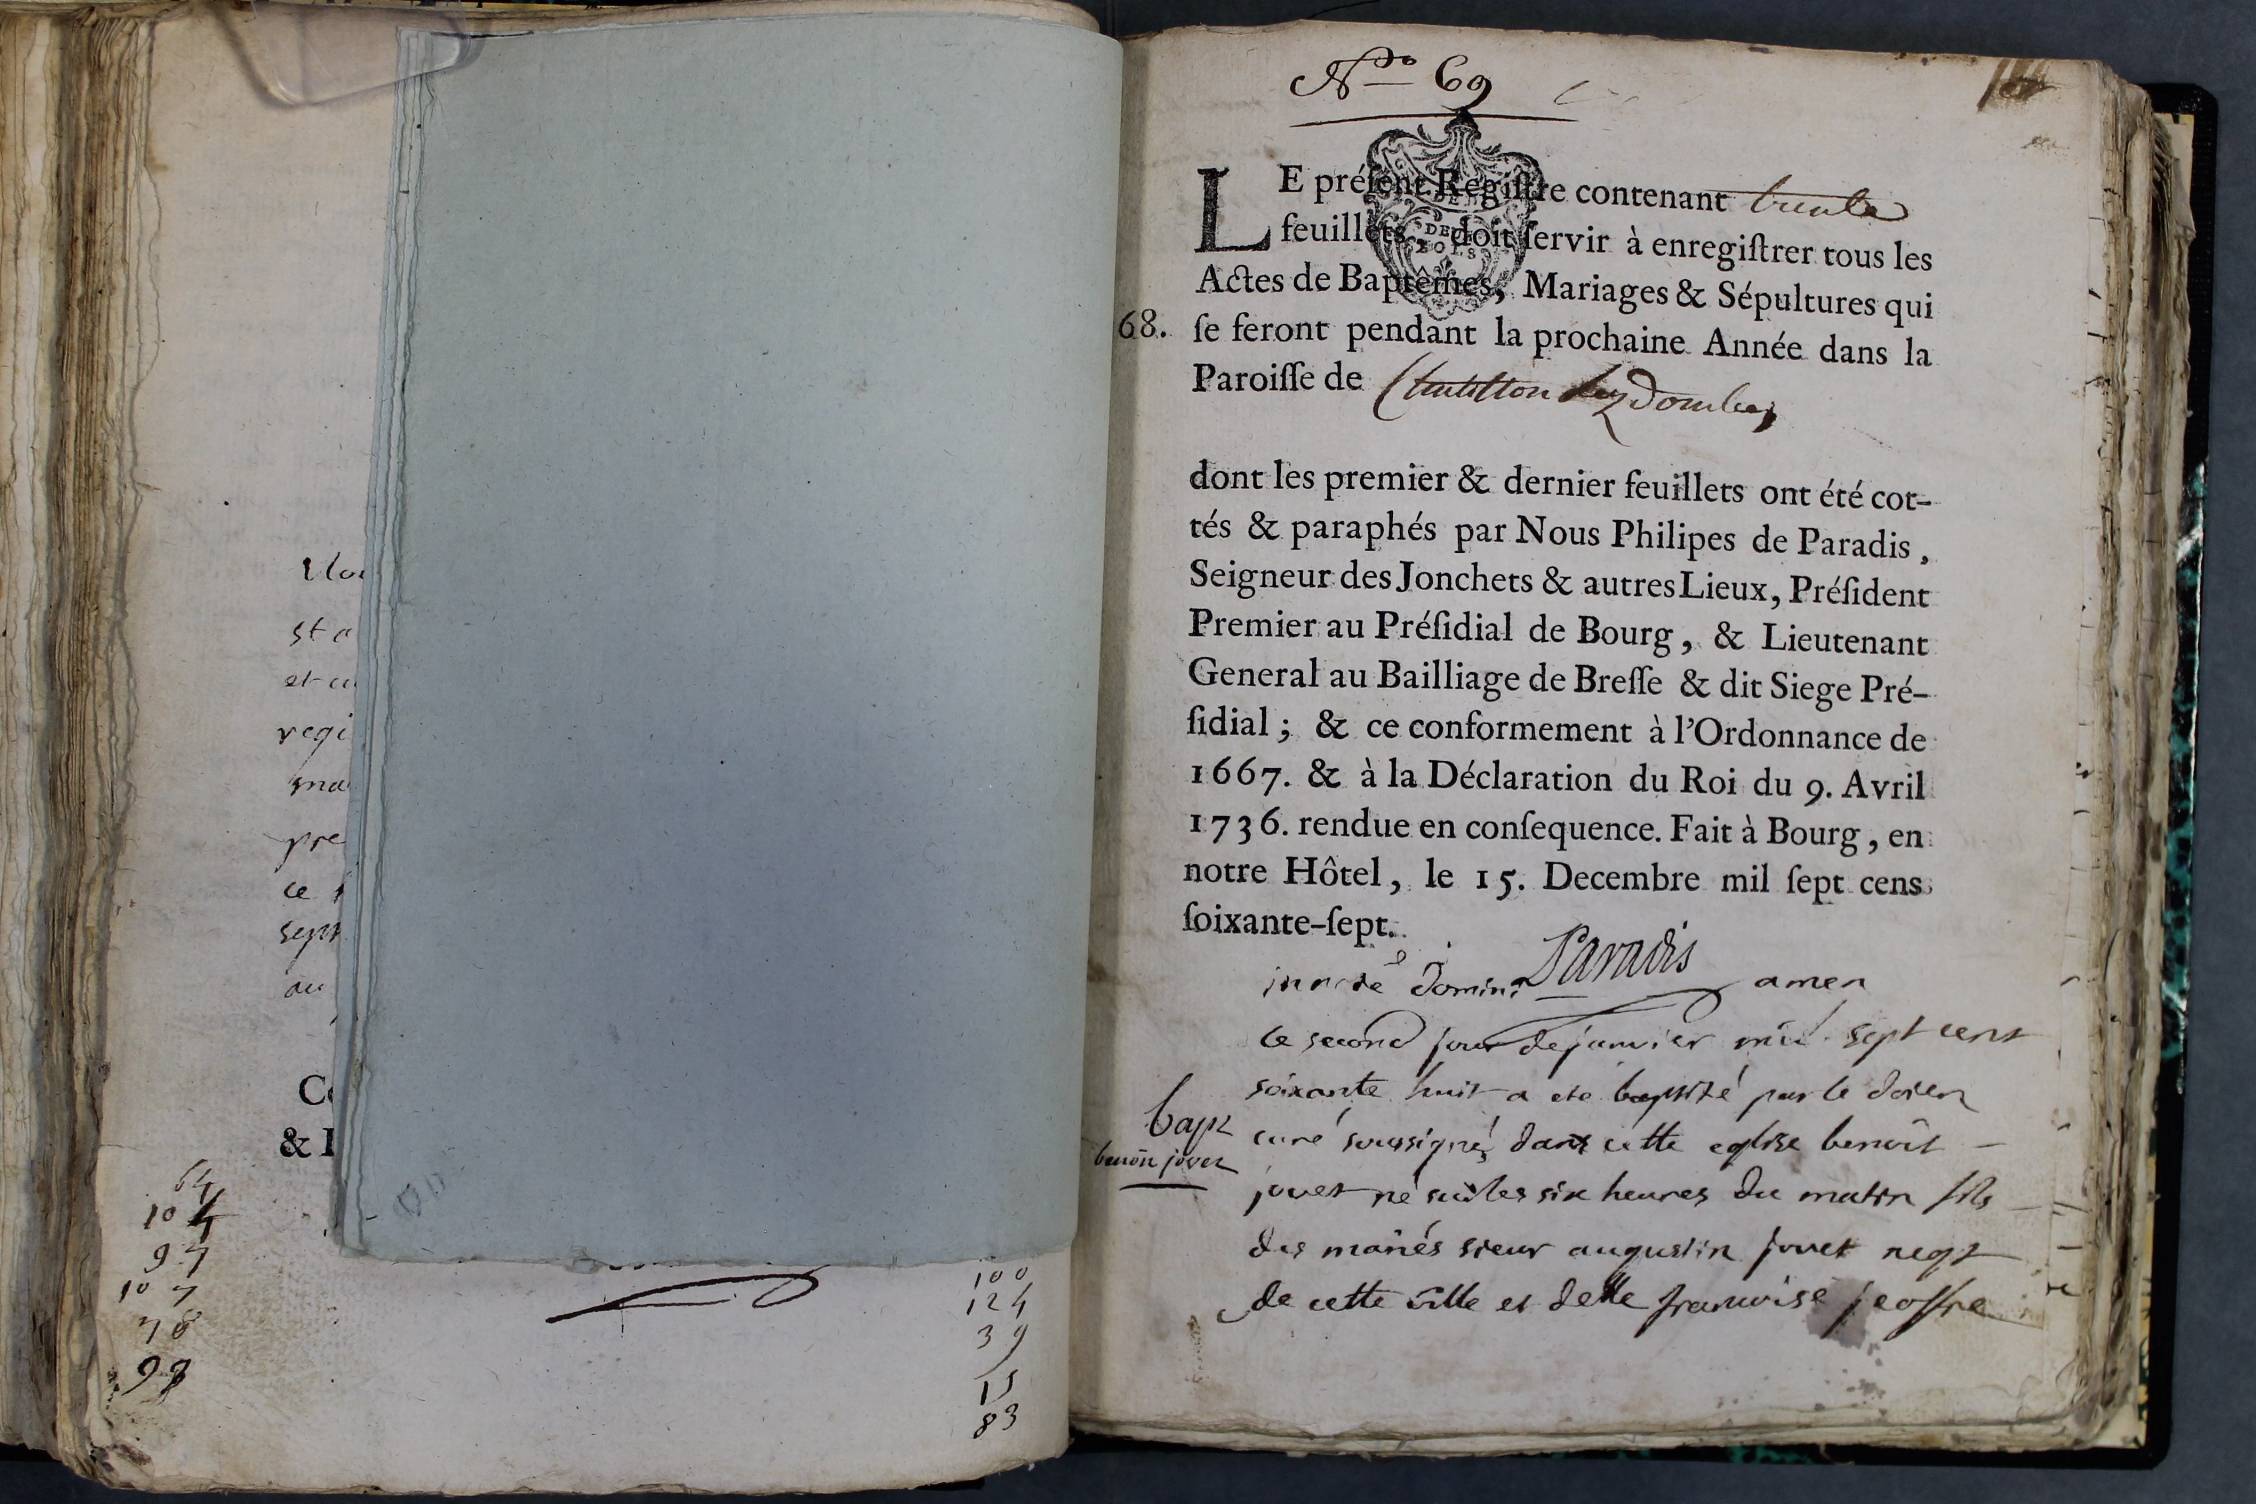 st a
et cu
regi
ma
pre
ce
sept
au
& 
64
104
97
107
78
98
100
124
39
15
83
No 69
LE préſent Regiſtre contenant trente
feuillets, doit ſervir à enregiſtrer tous les
Actes de Baptêmes, Mariages & Sépultures qui
68. ſe feront pendant la prochaine Année dans la
Paroiſſe de Chatillon lez Dombes
dont les premier & dernier feuillets ont été cot-
tés & paraphés par Nous Philipes de Paradis,
Seigneur des Jonchets & autres Lieux, Préſident
Premier au Préſidial de Bourg, & Lieutenant
General au Bailliage de Breſſe & dit Siege Pré-
ſidial; & ce conformement à l'Ordonnance de
1667. & à la Déclaration du Roi du 9. Avril
1736. rendue en conſequence. Fait à Bourg, en
notre Hôtel, le 15. Decembre mil ſept cens
ſoixante-ſept.
Paradis
in nōe Domini amen
le second jour de janvier mil sept cent
soixante huit a eté baptizé par le doien
curé soussigné dans cette eglise benoît
jovet né sur les six heures du matin fils
des mariés sieur augustin jovet negt
de cette ville et delle francoise jeoffre
bapt
benoît jovet